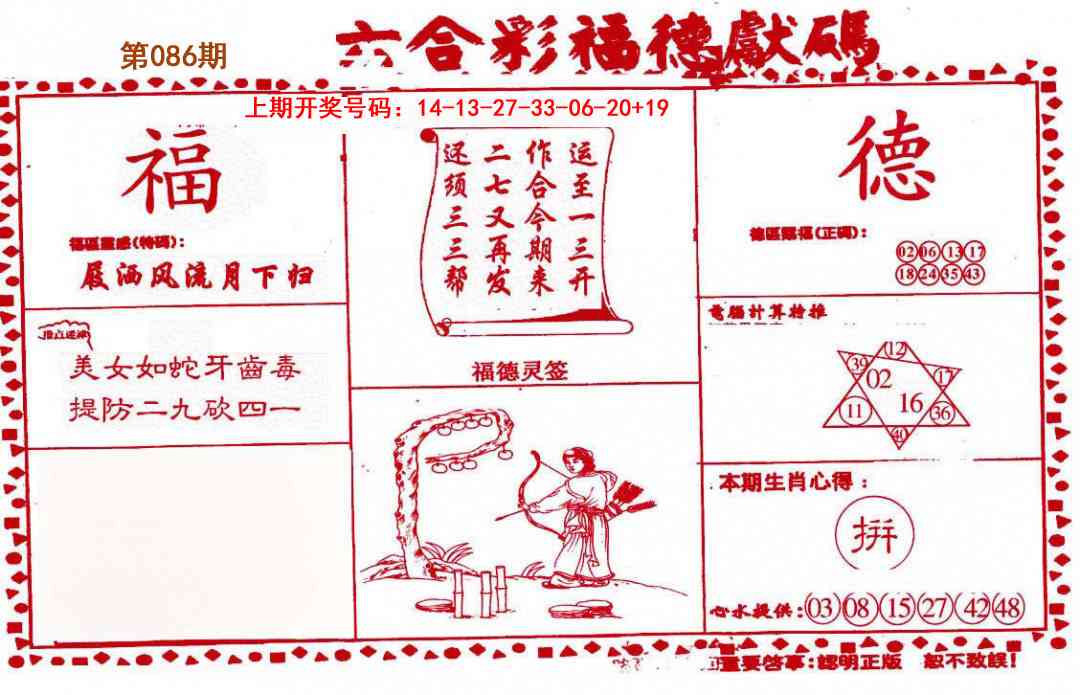 第086期
六合彩福德獻碼
上期开奖号码：14-13-27-33-06-20+19
福
福區靈感(特碼)：
屐洒风流月下归
美女如蛇牙齒毒
提防二九砍四一
运至一三开
作合今期来
二七又再发
还须三三帮
福德灵签
德
德區賜福(正碼)：
02 06 13 17
18 24 35 43
電腦計算特推
12
39 02 17
11 16 36
40
本期生肖心得：
拼
心水提供：03 08 15 27 42 48
重要啓事：認明正版 恕不致誤！